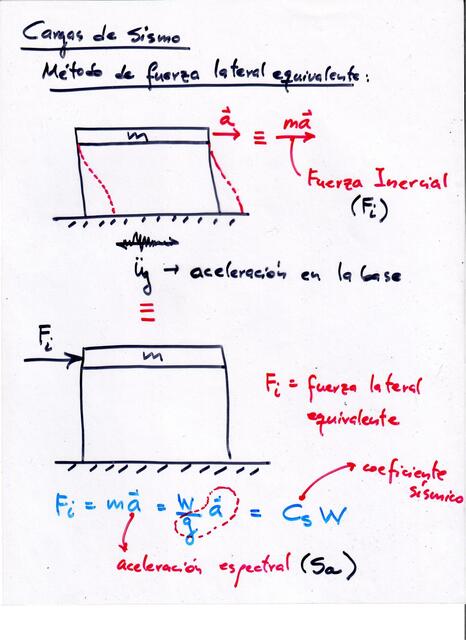 Cargas de Sismo
Método de fuerza lateral equivalente:
m
a⃗ ≡ ma⃗
Fuerza Inercial
(Fi)
üg → aceleración en la base
≡
Fi
m
Fi = fuerza lateral
equivalente
coeficiente
sísmico
Fi = ma⃗ = W/g a⃗ = Cs W
aceleración espectral (Sa)